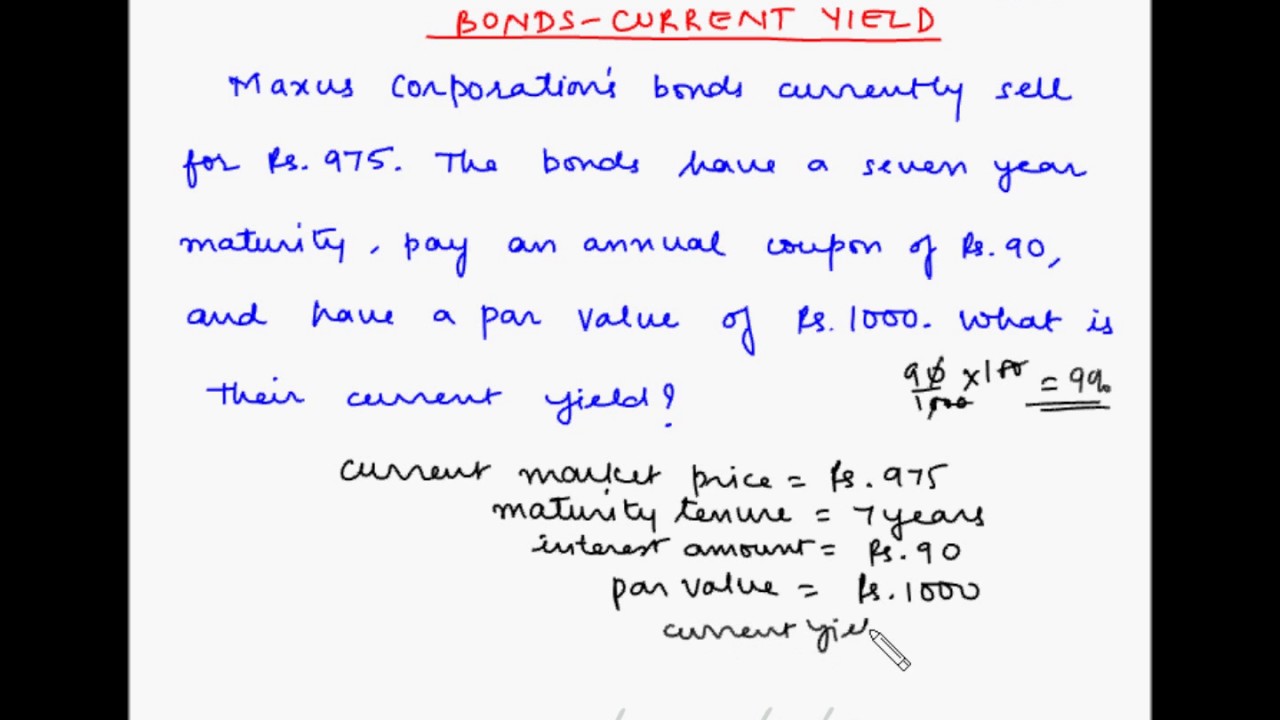 BONDS-CURRENT YIELD
Maxus Corporation's bonds currently sell
for Rs. 975. The bonds have a seven year
maturity, pay an annual coupon of Rs. 90,
and have a par value of Rs. 1000. What is
their current yield?
90/1000 x100 = 9%
current market price = Rs. 975
maturity tenure = 7 years
interest amount = Rs. 90
par value = Rs. 1000
current yiel